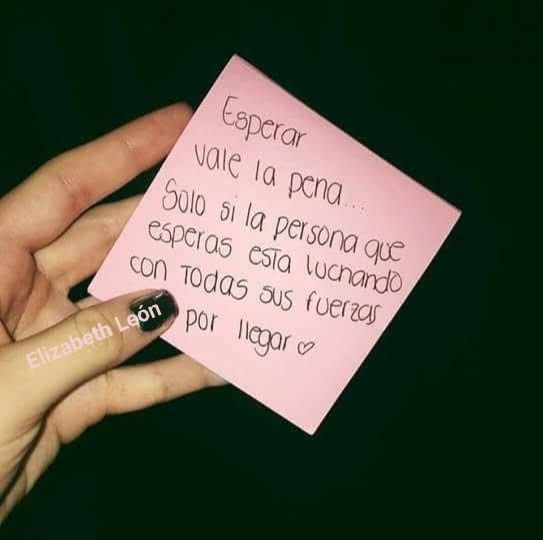 Esperar
vale la pena...
Solo si la persona que
esperas esta luchando
con todas sus fuerzas
por llegar ♡
Elizabeth León